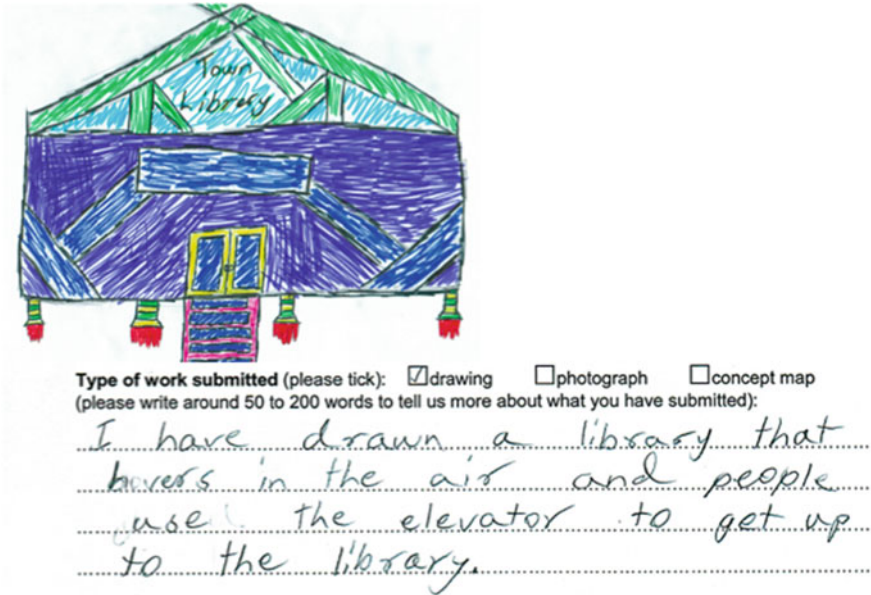 Town
Library
Type of work submitted (please tick): ☑drawing ☐photograph ☐concept map
(please write around 50 to 200 words to tell us more about what you have submitted):
I have drawn a library that
hovers in the air and people
use the elevator to get up
to the library.